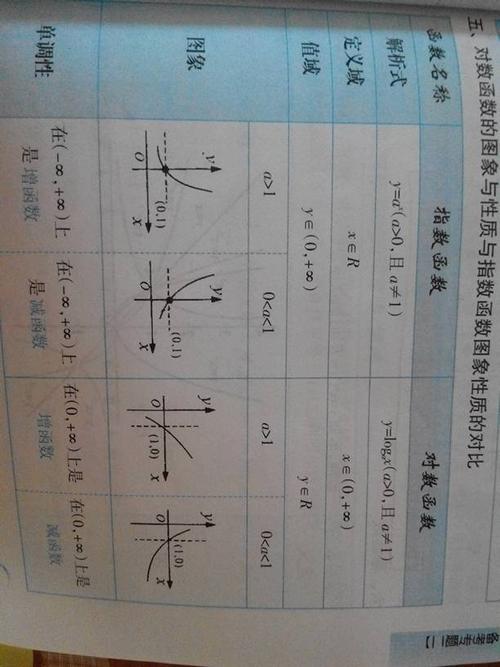 五、对数函数的图象与性质与指数函数图象性质的对比
函数名称
指数函数
对数函数
解析式
y=aˣ(a>0,且a≠1)
y=logₐx(a>0,且a≠1)
定义域
x∈R
x∈(0,+∞)
值域
y∈(0,+∞)
y∈R
a>1
0<a<1
a>1
0<a<1
图象
y
(0,1)
O
x
y
(0,1)
O
x
y
O
(1,0)
x
y
O
(1,0)
x
单调性
在(-∞,+∞)上
是增函数
在(-∞,+∞)上
是减函数
在(0,+∞)上是
增函数
在(0,+∞)上是
减函数
备考专题二